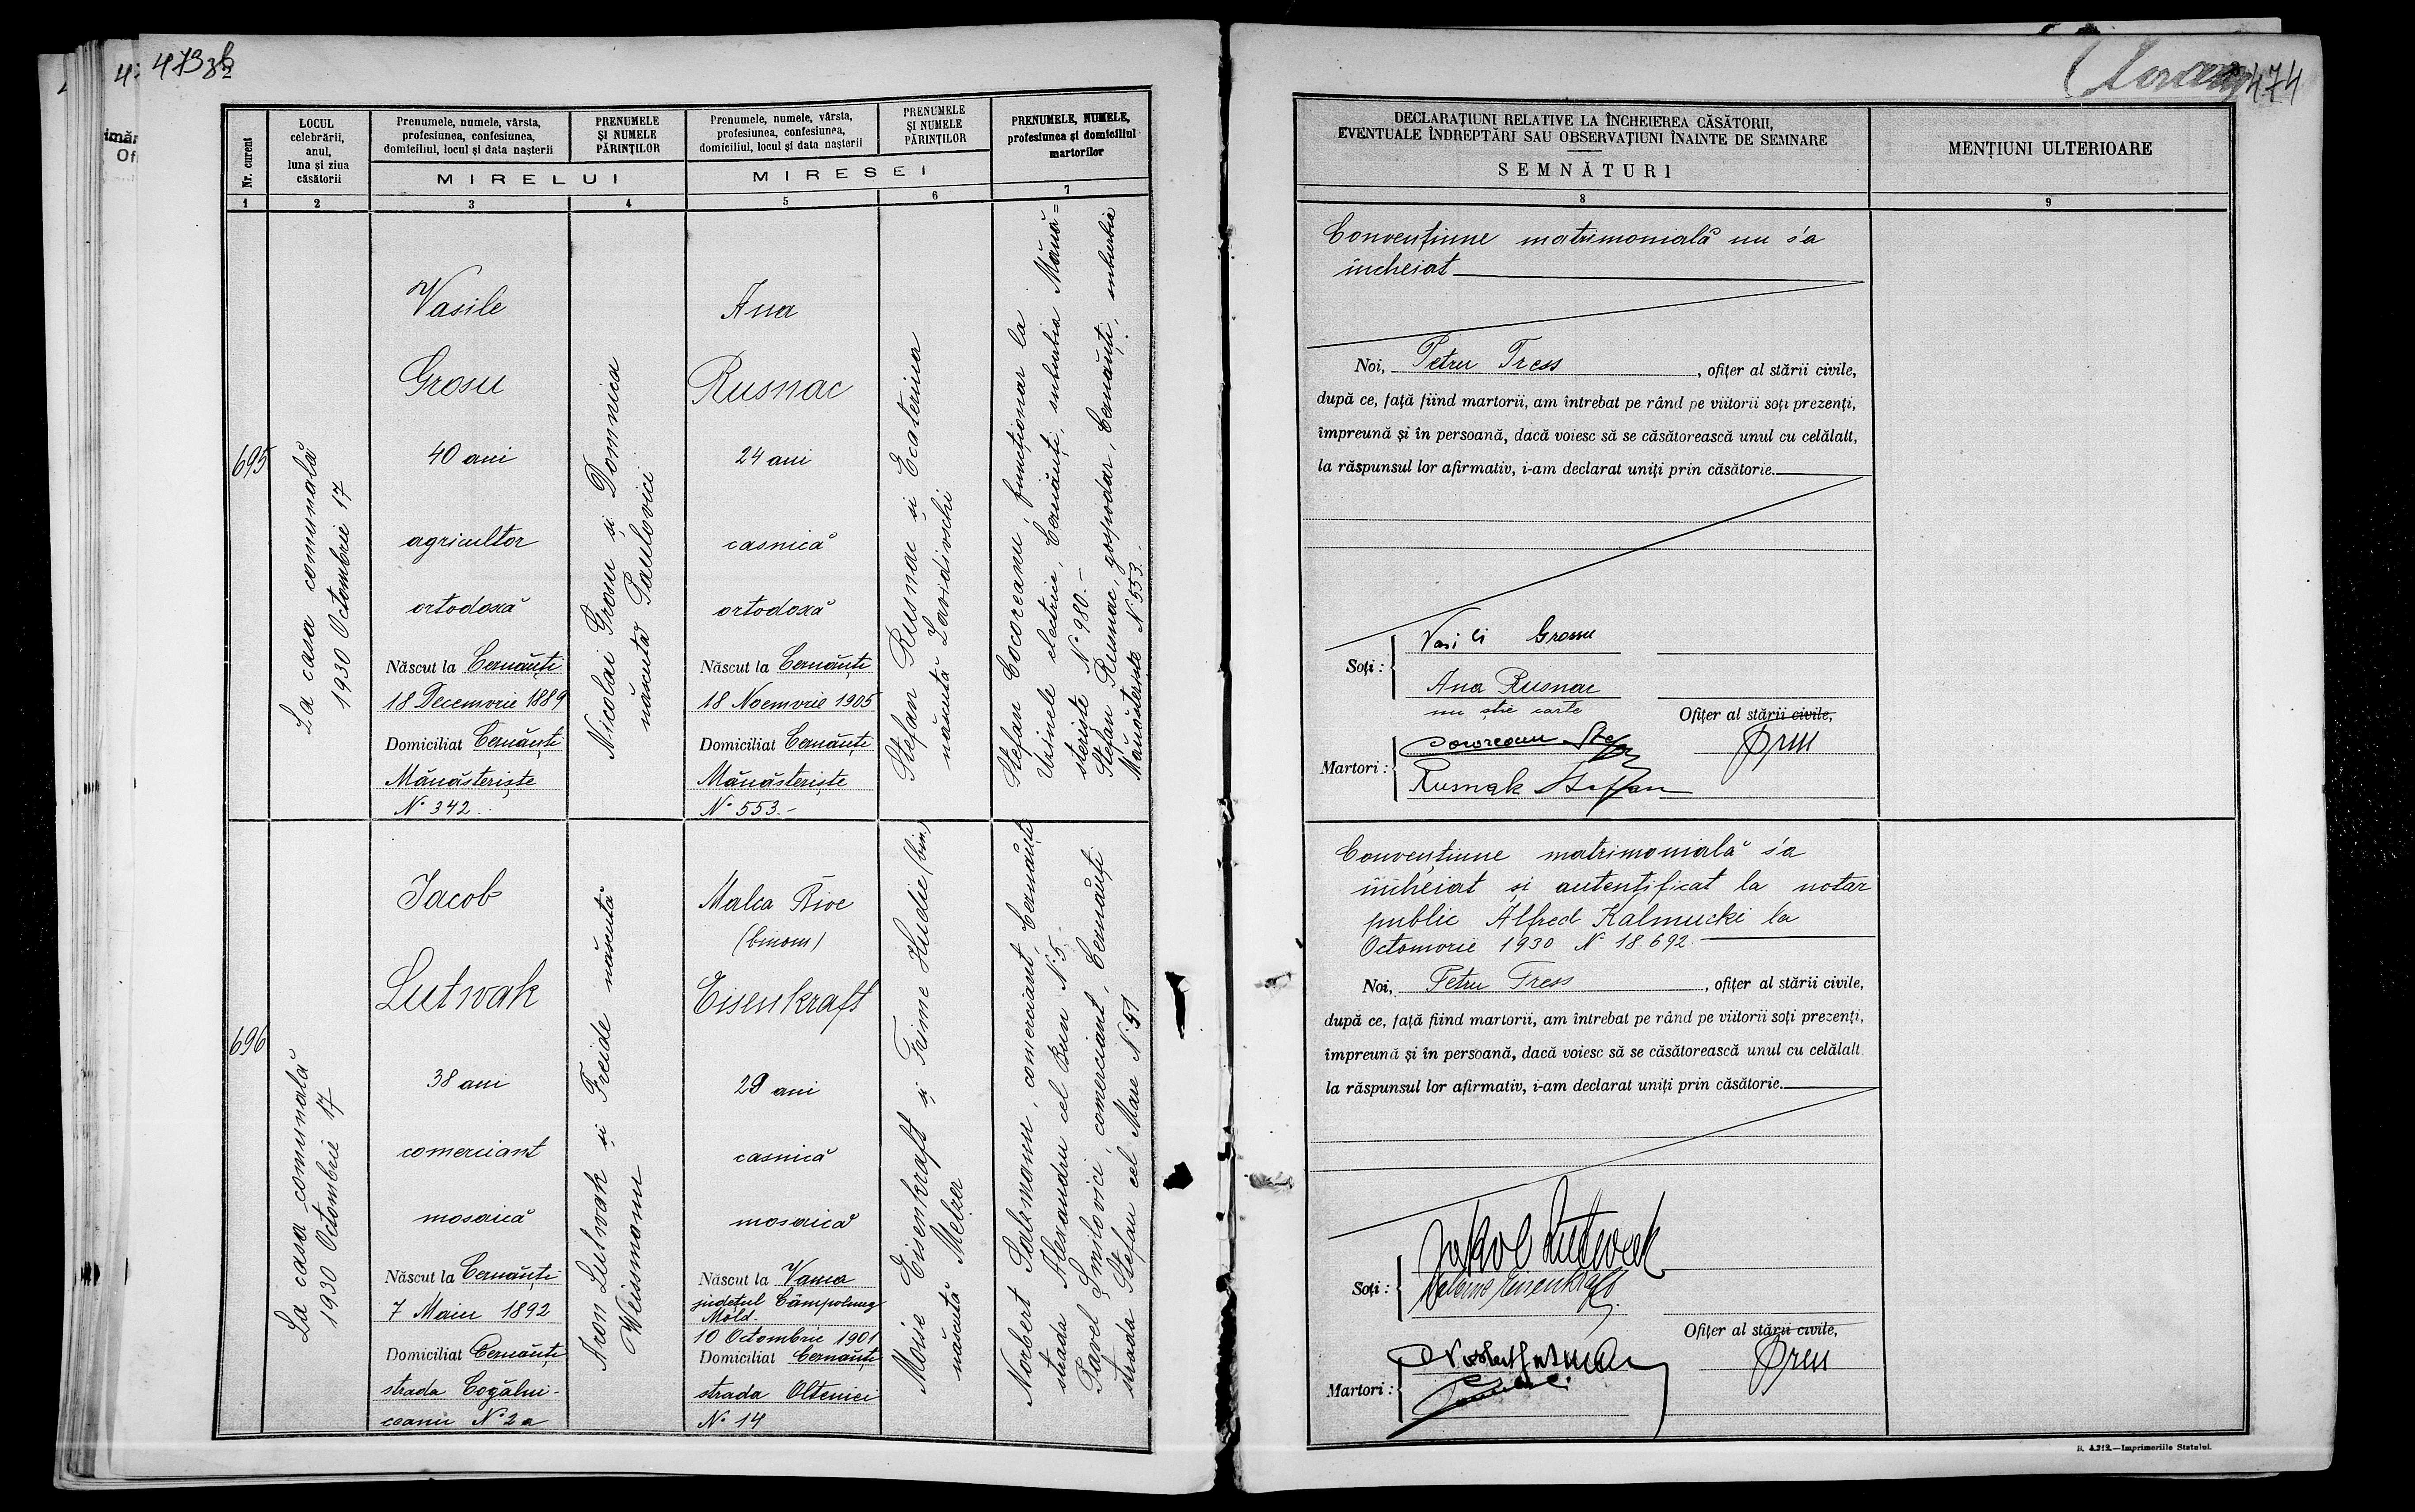 473
474
Nr. curent
LOCUL
celebrării,
anul,
luna și ziua
căsătorii
Prenumele, numele, vârsta,
profesiunea, confesiunea,
domiciliul, locul și data nașterii
PRENUMELE
ȘI NUMELE
PĂRINȚILOR
MIRELUI
Prenumele, numele, vârsta,
profesiunea, confesiunea,
domiciliul, locul și data nașterii
PRENUMELE
ȘI NUMELE
PĂRINȚILOR
MIRESEI
PRENUMELE, NUMELE,
profesiunea și domiciliul
martorilor
1 2 3 4 5 6 7
695
La casa comunală
1930 Octombrie 17
Vasile
Grosu
40 ani
agricultor
ortodoxă
Născut la Cernăuți
18 Decemvrie 1889
Domiciliat Cernăuți
Mănăsteriște
No 342.
Nicolai Grosu și Domnica
născută Paulovici
Ana
Rusnac
24 ani
casnică
ortodoxă
Născut la Cernăuți
18 Noemvrie 1905
Domiciliat Cernăuți
Mănăsteriște
No 553.-
Ștefan Rusnac și Ecaterina
născută Zavidivschi
Ștefan Cocoreanu, funcționar la
Uzinele electrice, Cernăuți, suburbia Mănă=
steriște No 980.-
Ștefan Rusnac, gospodar, Cernăuți, suburbia
Mănăsteriște No 553.
696
La casa comunală
1930 Octombrie 17
Jacob
Lutwak
38 ani
comerciant
mosaică
Născut la Cernăuți
7 Maiu 1892
Domiciliat Cernăuți
strada Cogălni-
ceanu No 2a
Aron Lutwak și Freide născută
Weissmann
Malca Rive
(binom)
Eisenkraft
29 ani
casnică
mosaică
Născut la Vama
județul Câmpolung
Mold.
10 Octombrie 1901
Domiciliat Cernăuți
strada Olteniei
No 14
Moise Eisenkraft și Frime Hudie (bin.)
născută Melzer
Norbert Salzmann, comerciant, Cernăuți
strada Alexandru cel Bun No 5.-
Pavel Șmilovici, comerciant, Cernăuți
strada Ștefan cel Mare No 51
DECLARAȚIUNI RELATIVE LA ÎNCHEIEREA CĂSĂTORII,
EVENTUALE ÎNDREPTĂRI SAU OBSERVAȚIUNI ÎNAINTE DE SEMNARE
SEMNĂTURI
MENȚIUNI ULTERIOARE
8 9
Convențiune matrimonială nu s'a
încheiat
Noi, Petru Tress, ofițer al stării civile,
după ce, față fiind martorii, am întrebat pe rând pe viitorii soți prezenți,
împreună și în persoană, dacă voiesc să se căsătorească unul cu celălalt,
la răspunsul lor afirmativ, i-am declarat uniți prin căsătorie.
Soți:
Vasili Grossu
Ana Rusnac
nu știe carte
Ofițer al stării civile,
Martori:
Rusnak Stefan
Convențiune matrimonială s'a
încheiat și autentificat la notar
public Alfred Kalmucki la
Octomvrie 1930 No 18.692.
Noi, Petru Tress, ofițer al stării civile,
după ce, față fiind martorii, am întrebat pe rând pe viitorii soți prezenți,
împreună și în persoană, dacă voiesc să se căsătorească unul cu celălalt
la răspunsul lor afirmativ, i-am declarat uniți prin căsătorie.
Soți:
Jakob Lutwak
Eisenkraft
Ofițer al stării civile,
Martori:
B. 4.212.—Imprimeriile Statului.